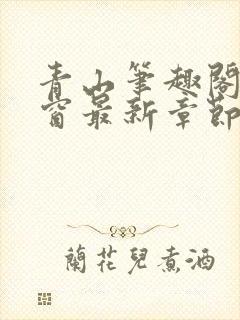 青山筆趣閣
窗最新章節
蘭花兒煮酒